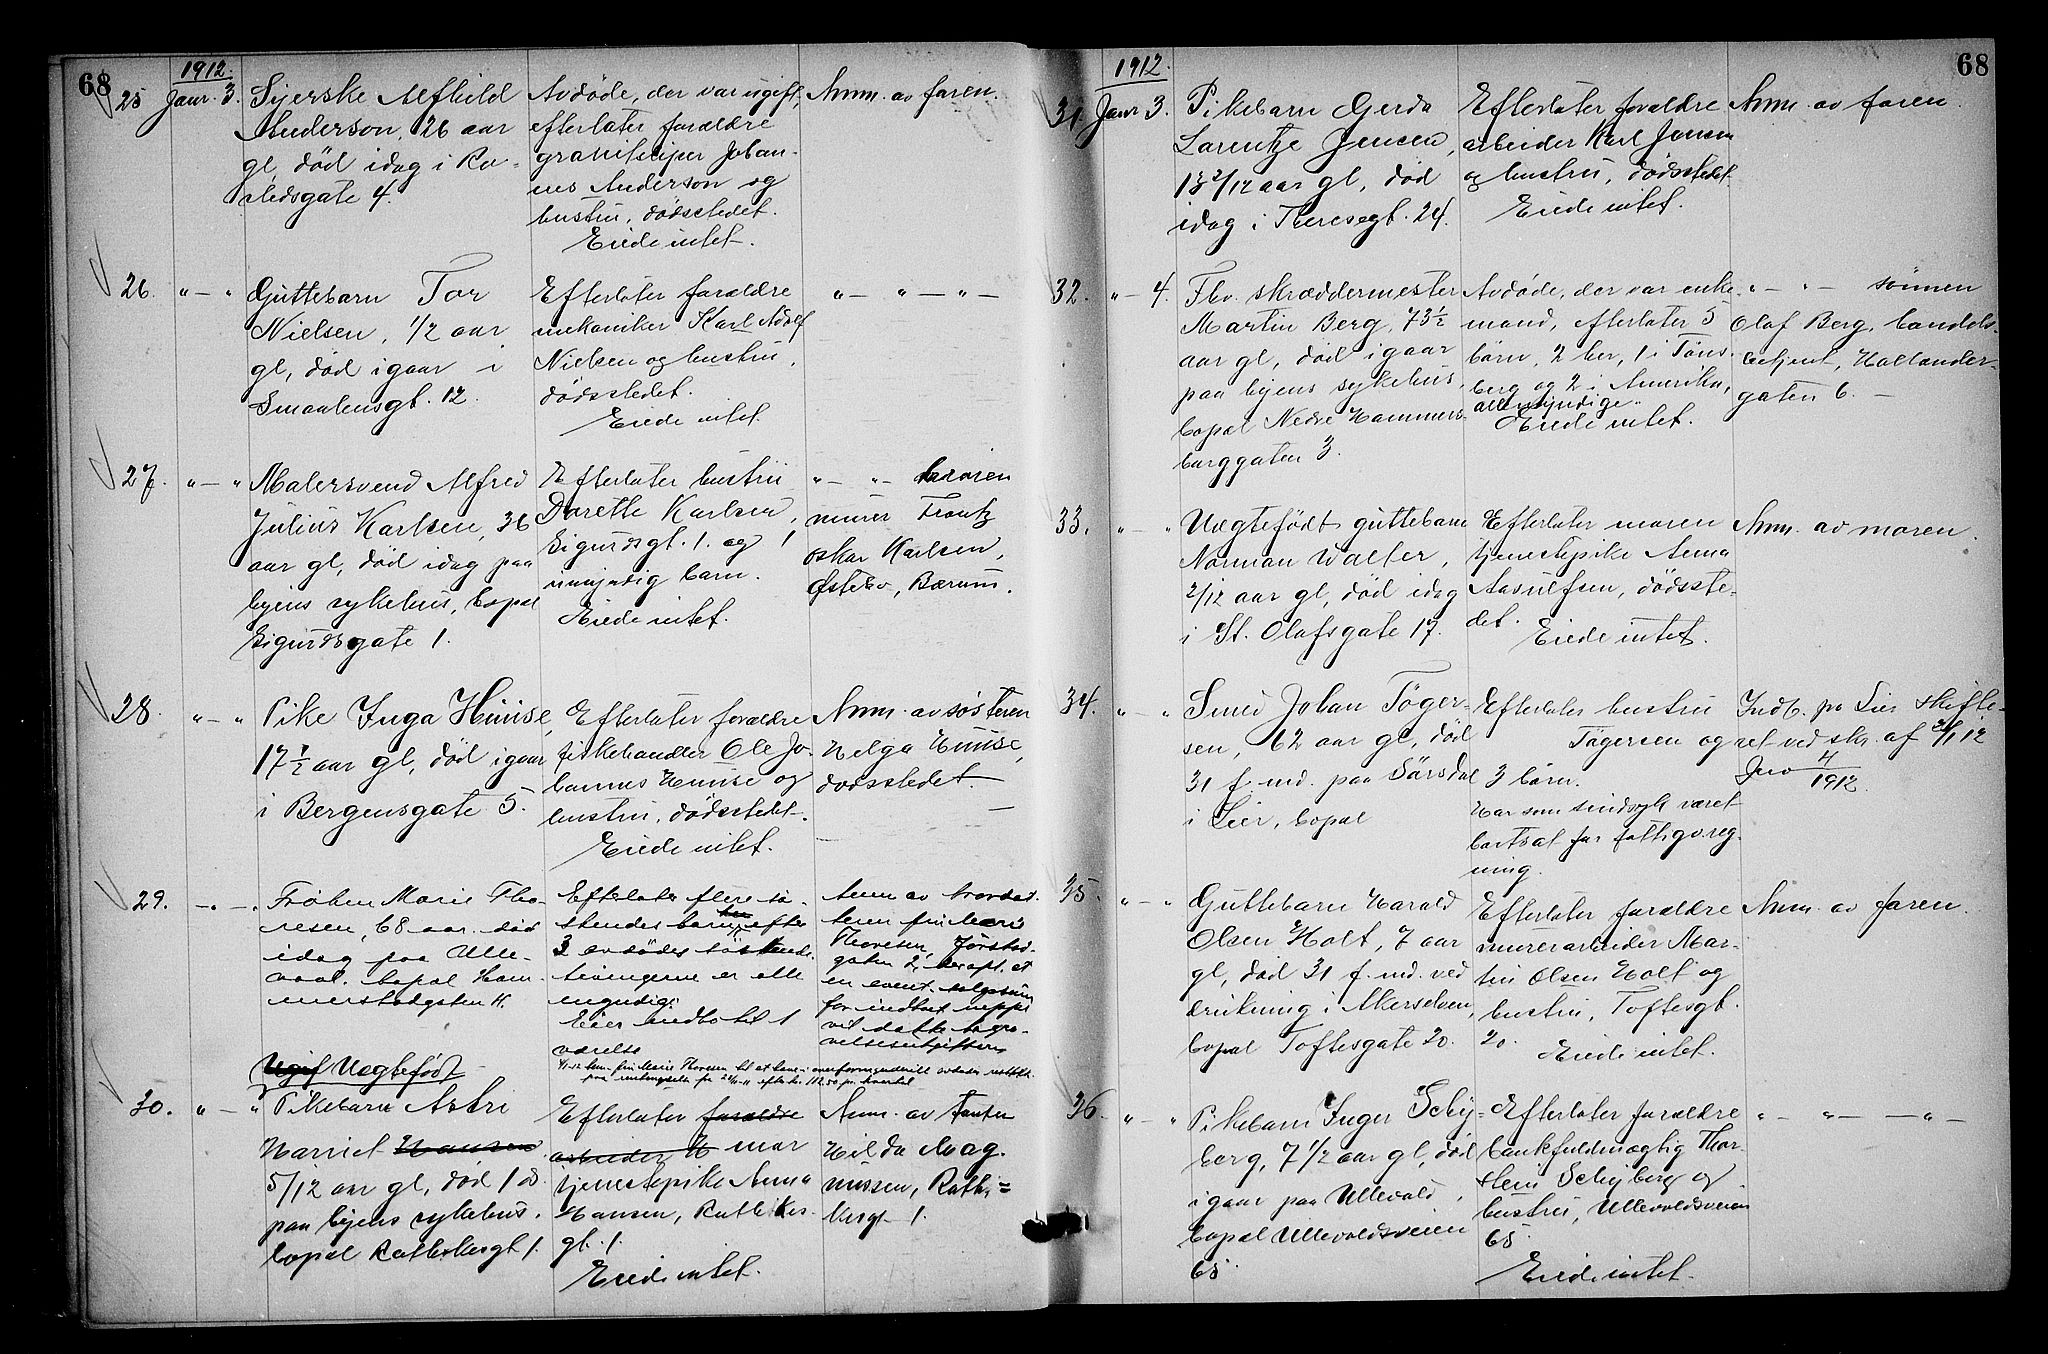 68
1912.
25 Janr. 3. Syerske Alfhild
Anderson, 26 aar
gl, død idag i Ro-
stedsgate 4.
Avdøde, der var ugift,
efterlater forældre
granitsliper Johan-
nes Anderson og
hustru, dødsstedet.
Eiede intet.
Anm. av faren.
26. " — " Guttebarn Tor
Nielsen, 1/2 aar
gl, død igaar i
Smaalensgt. 12.
Efterlater forældre
mekaniker Karl Adolf
Nielsen og hustru,
dødsstedet.
Eiede intet.
" — " — " —
27. " — " Malersvend Alfred
Julius Karlsen, 36
aar gl, død idag paa
byens sykehus, bopæl
Sigurdsgate 1.
Efterlater hustru
Dorette Karlsen,
Sigurdsgt. 1. og 1
umyndig barn.
Eiede intet.
" — " — broren
murer Frantz
Oskar Karlsen,
Østebo, Bærum.
28. " — " Pike Inga Huuse,
17 1/2 aar gl, død igaar
i Bergensgate 5.
Efterlater forældre
fiskehandler Ole Jo-
hannes Huuse og
hustru, dødsstedet.
Eiede intet.
Anm. av søsteren
Helga Huuse,
dødsstedet.
29. — " — " Frøken Marie Tho-
resen, 68 aar død
idag paa Ulle-
vaal. bopæl Ham-
merstadgaten 11.
Efterlater flere sø-
skendes barn efter
3 avdødes søskende.
alle
myndige
Eier indbo til 1
værelse
Anm av
Thoresen,
en event.
for indboet neppe
vil dække begra-
velsesutgiftene
Ugif Uægtefødt
30. " — " Pikebarn Astri
Harriet Hansen
5/12 aar gl, død 1 ds
paa byens sykehus.
bopæl Rathkesgt 1.
Efterlater forældre
arbeider H mor
tjenestepike Anna
Hansen, Rathkes-
gt. 1.
Eiede intet.
Anm. av tanten
Hilda Mag-
nussen, Rath-
kesgt 1.
68
1912.
31. Janr 3. Pikebarn Gerda
Lorentze Jensen,
1 2/12 aar gl, død
idag i Theresegt. 24.
Efterlater forældre
arbeider Karl Jensen
og hustru, dødsstedet.
Eiede intet.
Anm. av faren.
32. " — 4. Fhv. skræddermester
Martin Berg, 73 1/2
aar gl, død igaar
paa byens sykehus,
bopæl Nedre Hammers-
borggaten 3.
Avdøde, der var enke-
mand, efterlater 5
børn, 2 her, 1 i Tøns-
berg og 2 i Amerika,
alle myndige.
Eiede intet.
" — " — sønnen
Olaf Berg, handels-
betjent, Hollænder-
gaten 6. —
33. " — " Uægtefødt guttebarn
Norman Walter,
2/12 aar gl, død idag
i St. Olafsgate 17.
Efterlater moren
tjenestepike Anna
Aasulfsen, dødsste-
det.
Eiede intet.
Anm. av moren.
34. " — " Smed Johan Tøger-
sen, 62 aar gl, død
31 f. md. paa Sørsdal
i Lier, bopæl
Efterlater hustru
Tøgersen og
3 børn.
Har som sindssyk været
bortsat for fattigv. reg-
ning.
Indb. fra Lier skifte-
ret ved skr. af 2/1 12
Jno 4/1912.
35. " — " Guttebarn Harald
Olsen Holt, 7 aar
gl, død 31 f. md. ved
drukning i Akerselven,
bopæl Toftesgate 20.
Efterlater forældre
murerarbeider Mar-
tin Olsen Holt og
hustru, Toftesgt.
20.
Eiede intet.
Anm. av faren.
36. " — " Pikebarn Inger Schy-
berg, 7 1/2 aar gl, død
igaar paa Ullevold,
bopæl Ullevoldsveien
65.
Efterlater forældre
bankfuldmægtig Thor-
stein Schyberg og
hustru, Ullevoldsveien
65.
Eiede intet.
" — " — " —